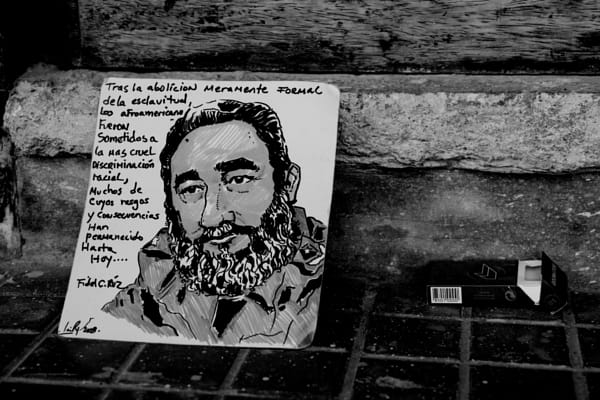 Tras la abolición meramente formal
de la esclavitud,
los afroamericanos
fueron
sometidos a
la mas cruel
discriminación
racial,
muchos de
cuyos rasgos
y consecuencias
han
permanecido
hasta
hoy....
Fidel C.